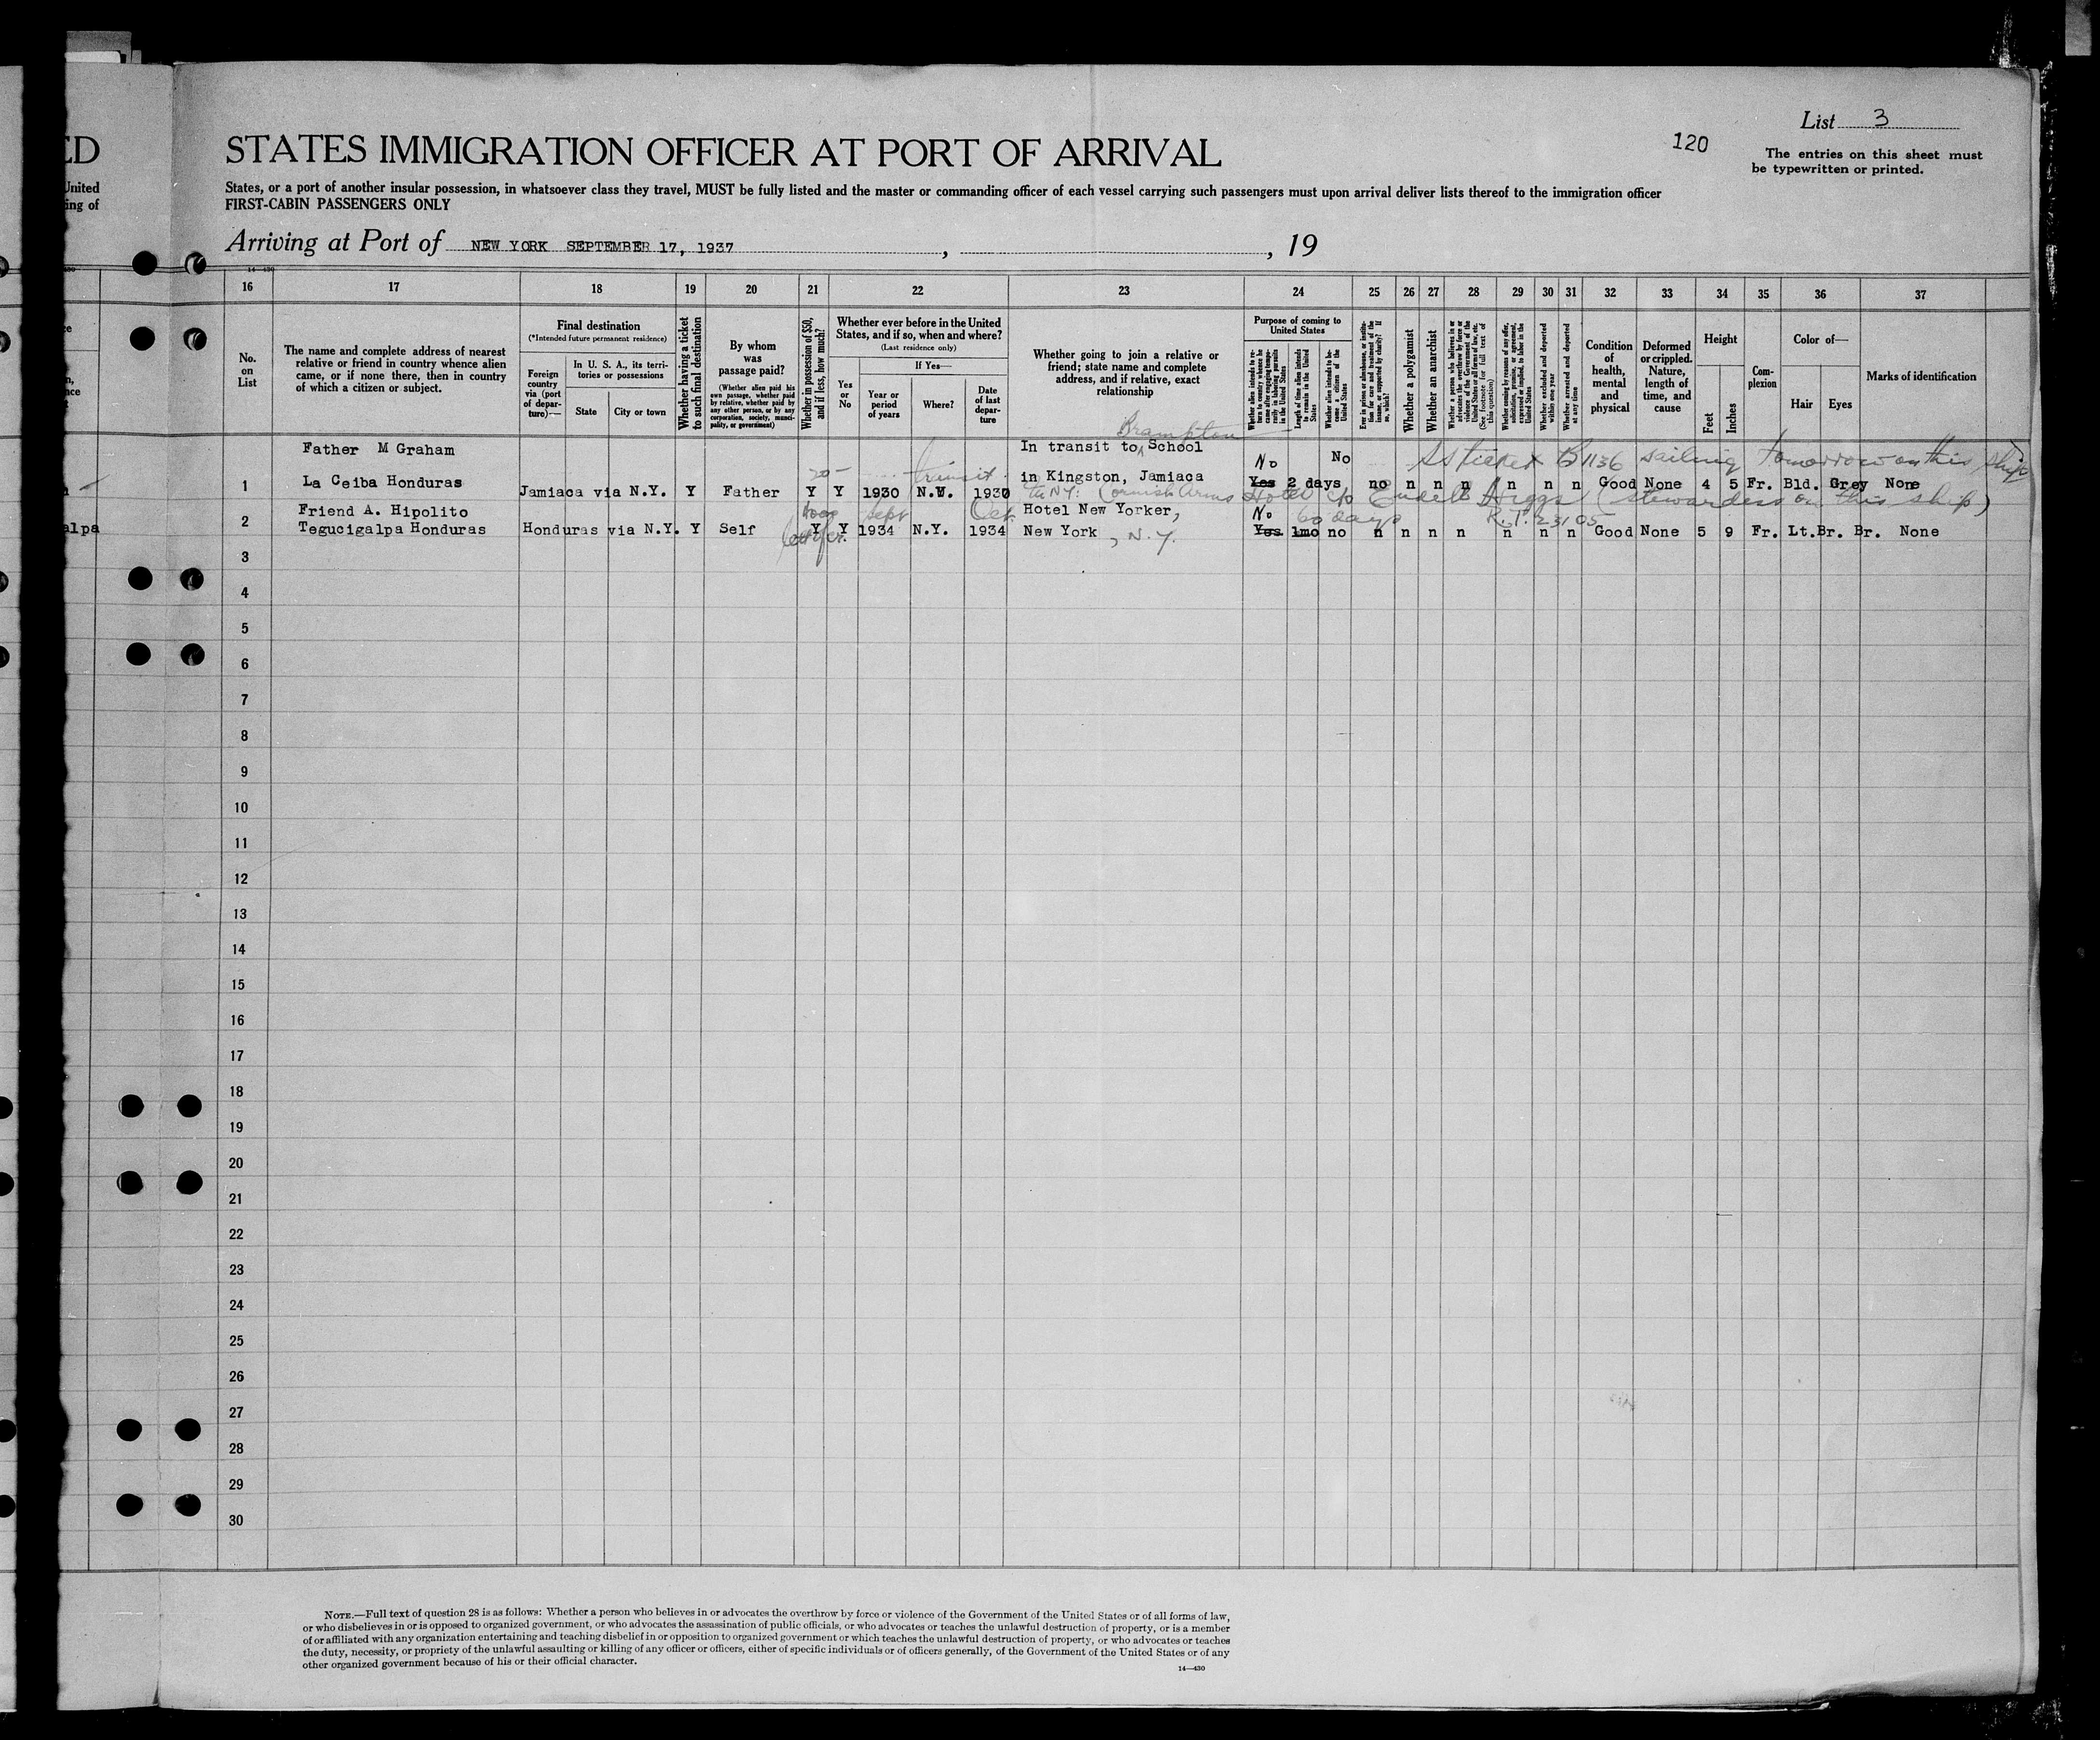 List 3
120
ED
STATES IMMIGRATION OFFICER AT PORT OF ARRIVAL
The entries on this sheet must
be typewritten or printed.
United
ing of
States, or a port of another insular possession, in whatsoever class they travel, MUST be fully listed and the master or commanding officer of each vessel carrying such passengers must upon arrival deliver lists thereof to the immigration officer
FIRST-CABIN PASSENGERS ONLY
Arriving at Port of NEW YORK SEPTEMBER 17, 1937 , , 19
14—430
16 17 18 19 20 21 22 23 24 25 26 27 28 29 30 31 32 33 34 35 36 37
No. on List
The name and complete address of nearest relative or friend in country whence alien came, or if none there, then in country of which a citizen or subject.
Final destination
(*Intended future permanent residence)
Foreign country via (port of departure)—
In U. S. A., its territories or possessions
State
City or town
Whether having a ticket to such final destination
By whom was passage paid?
(Whether alien paid his own passage, whether paid by relative, whether paid by any other person, or by any corporation, society, municipality, or government)
Whether in possession of $50, and if less, how much?
Whether ever before in the United States, and if so, when and where?
(Last residence only)
Yes or No
If Yes—
Year or period of years
Where?
Date of last departure
Whether going to join a relative or friend; state name and complete address, and if relative, exact relationship
Purpose of coming to United States
Length of time alien intends to remain in the United States
Whether alien intends to become a citizen of the United States
Whether a polygamist
Whether an anarchist
Whether excluded and deported within one year
Whether arrested and deported at any time
Condition of health, mental and physical
Deformed or crippled. Nature, length of time, and cause
Height
Feet
Inches
Complexion
Color of—
Hair
Eyes
Marks of identification
Brampton
Father M Graham In transit to School No No SS ticket B1136 sailing tomorrow on this ship
20- transit
1 La Ceiba Honduras Jamiaca via N.Y. Y Father Y Y 1930 N.Y. 1930 in Kingston, Jamiaca Yes 2 days no n n n n n n Good None 4 5 Fr. Bld. Grey None
Cornish Arms Hotel c/o Endell Higgs (stewardess on this ship)
Friend A. Hipolito Sept Oct Hotel New Yorker, No 60 days R.T. 23105
alpa
2 Tegucigalpa Honduras Honduras via N.Y. Y Self Y Y 1934 N.Y. 1934 New York , N.Y. Yes 1mo no n n n n n n n Good None 5 9 Fr. Lt.Br. Br. None
3
4
5
6
7
8
9
10
11
12
13
14
15
16
17
18
19
20
21
22
23
24
25
26
27
28
29
30
NOTE.—Full text of question 28 is as follows: Whether a person who believes in or advocates the overthrow by force or violence of the Government of the United States or of all forms of law,
or who disbelieves in or is opposed to organized government, or who advocates the assassination of public officials, or who advocates or teaches the unlawful destruction of property, or is a member
of or affiliated with any organization entertaining and teaching disbelief in or opposition to organized government or which teaches the unlawful destruction of property, or who advocates or teaches
the duty, necessity, or propriety of the unlawful assaulting or killing of any officer or officers, either of specific individuals or of officers generally, of the Government of the United States or of any
other organized government because of his or their official character.
14—430